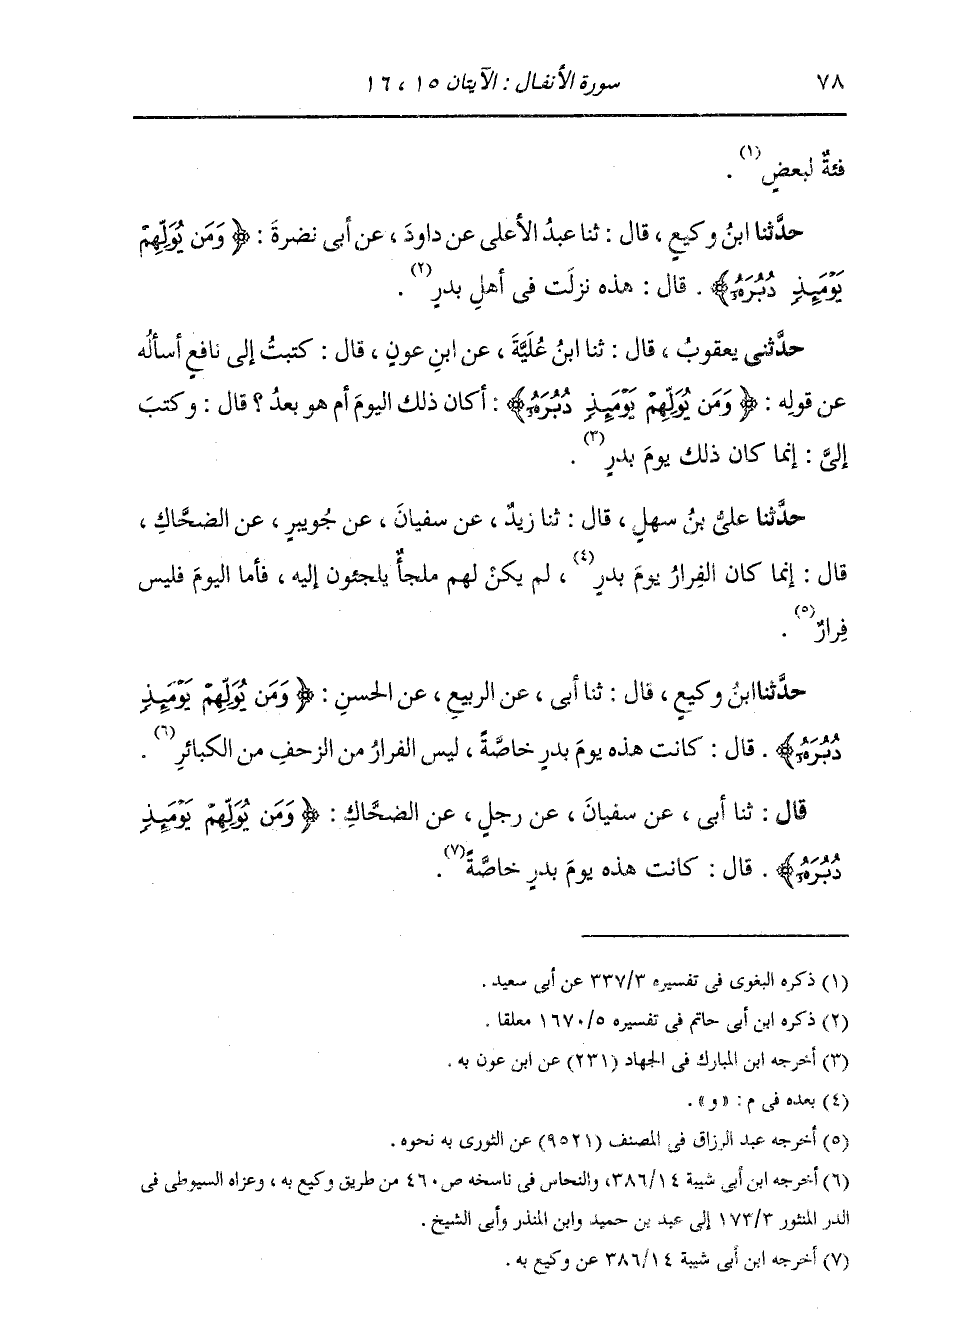 ٧٨
سورة الأنفال : الآيتان ١٥ ، ١٦
فئةٌ لبعضٍ(١) .
حدَّثنا ابنُ وكيعٍ ، قال : ثنا عبدُ الأعلى عن داودَ ، عن أبى نضرةَ : ﴿ وَمَن يُوَلِّهِمْ
يَوْمَئِذٍ دُبُرَهُۥ﴾ . قال : هذه نزلَت فى أهلِ بدرٍ(٢) .
حدَّثنى يعقوبُ ، قال : ثنا ابنُ عُلَيَّةَ ، عن ابنِ عونٍ ، قال : كتبتُ إلى نافعٍ أسألُه
عن قولِه : ﴿ وَمَن يُوَلِّهِمْ يَوْمَئِذٍ دُبُرَهُۥ﴾ : أكان ذلك اليومَ أم هو بعدُ ؟ قال : وكتبَ
إلىَّ : إنما كان ذلك يومَ بدرٍ(٣) .
حدَّثنا علىُّ بنُ سهلٍ ، قال : ثنا زيدٌ ، عن سفيانَ ، عن جُويبرٍ ، عن الضحَّاكِ ،
قال : إنما كان الفِرارُ يومَ بدرٍ(٤) ، لم يكنْ لهم ملجأٌ يلجئون إليه ، فأما اليومَ فليس
فِرارٌ(٥) .
حدَّثنا ابنُ وكيعٍ ، قال : ثنا أبى ، عن الربيعِ ، عن الحسنِ : ﴿ وَمَن يُوَلِّهِمْ يَوْمَئِذٍ
دُبُرَهُۥ﴾ . قال : كانت هذه يومَ بدرٍ خاصَّةً ، ليس الفرارُ من الزحفِ من الكبائرِ(٦) .
قال : ثنا أبى ، عن سفيانَ ، عن رجلٍ ، عن الضحَّاكِ : ﴿ وَمَن يُوَلِّهِمْ يَوْمَئِذٍ
دُبُرَهُۥ﴾ . قال : كانت هذه يومَ بدرٍ خاصَّةً(٧) .
(١) ذكره البغوى فى تفسيره ٣/ ٣٣٧ عن أبى سعيد .
(٢) ذكره ابن أبى حاتم فى تفسيره ٥/ ١٦٧٠ معلقا .
(٣) أخرجه ابن المبارك فى الجهاد (٢٣١) عن ابن عون به .
(٤) بعده فى م : «و» .
(٥) أخرجه عبد الرزاق فى المصنف (٩٥٢١) عن الثورى به نحوه .
(٦) أخرجه ابن أبى شيبة ١٤/ ٣٨٦، والنحاس فى ناسخه ص٤٦٠ من طريق وكيع به ، وعزاه السيوطى فى
الدر المنثور ٣/ ١٧٣ إلى عبد بن حميد وابن المنذر وأبى الشيخ .
(٧) أخرجه ابن أبى شيبة ١٤/ ٣٨٦ عن وكيع به .